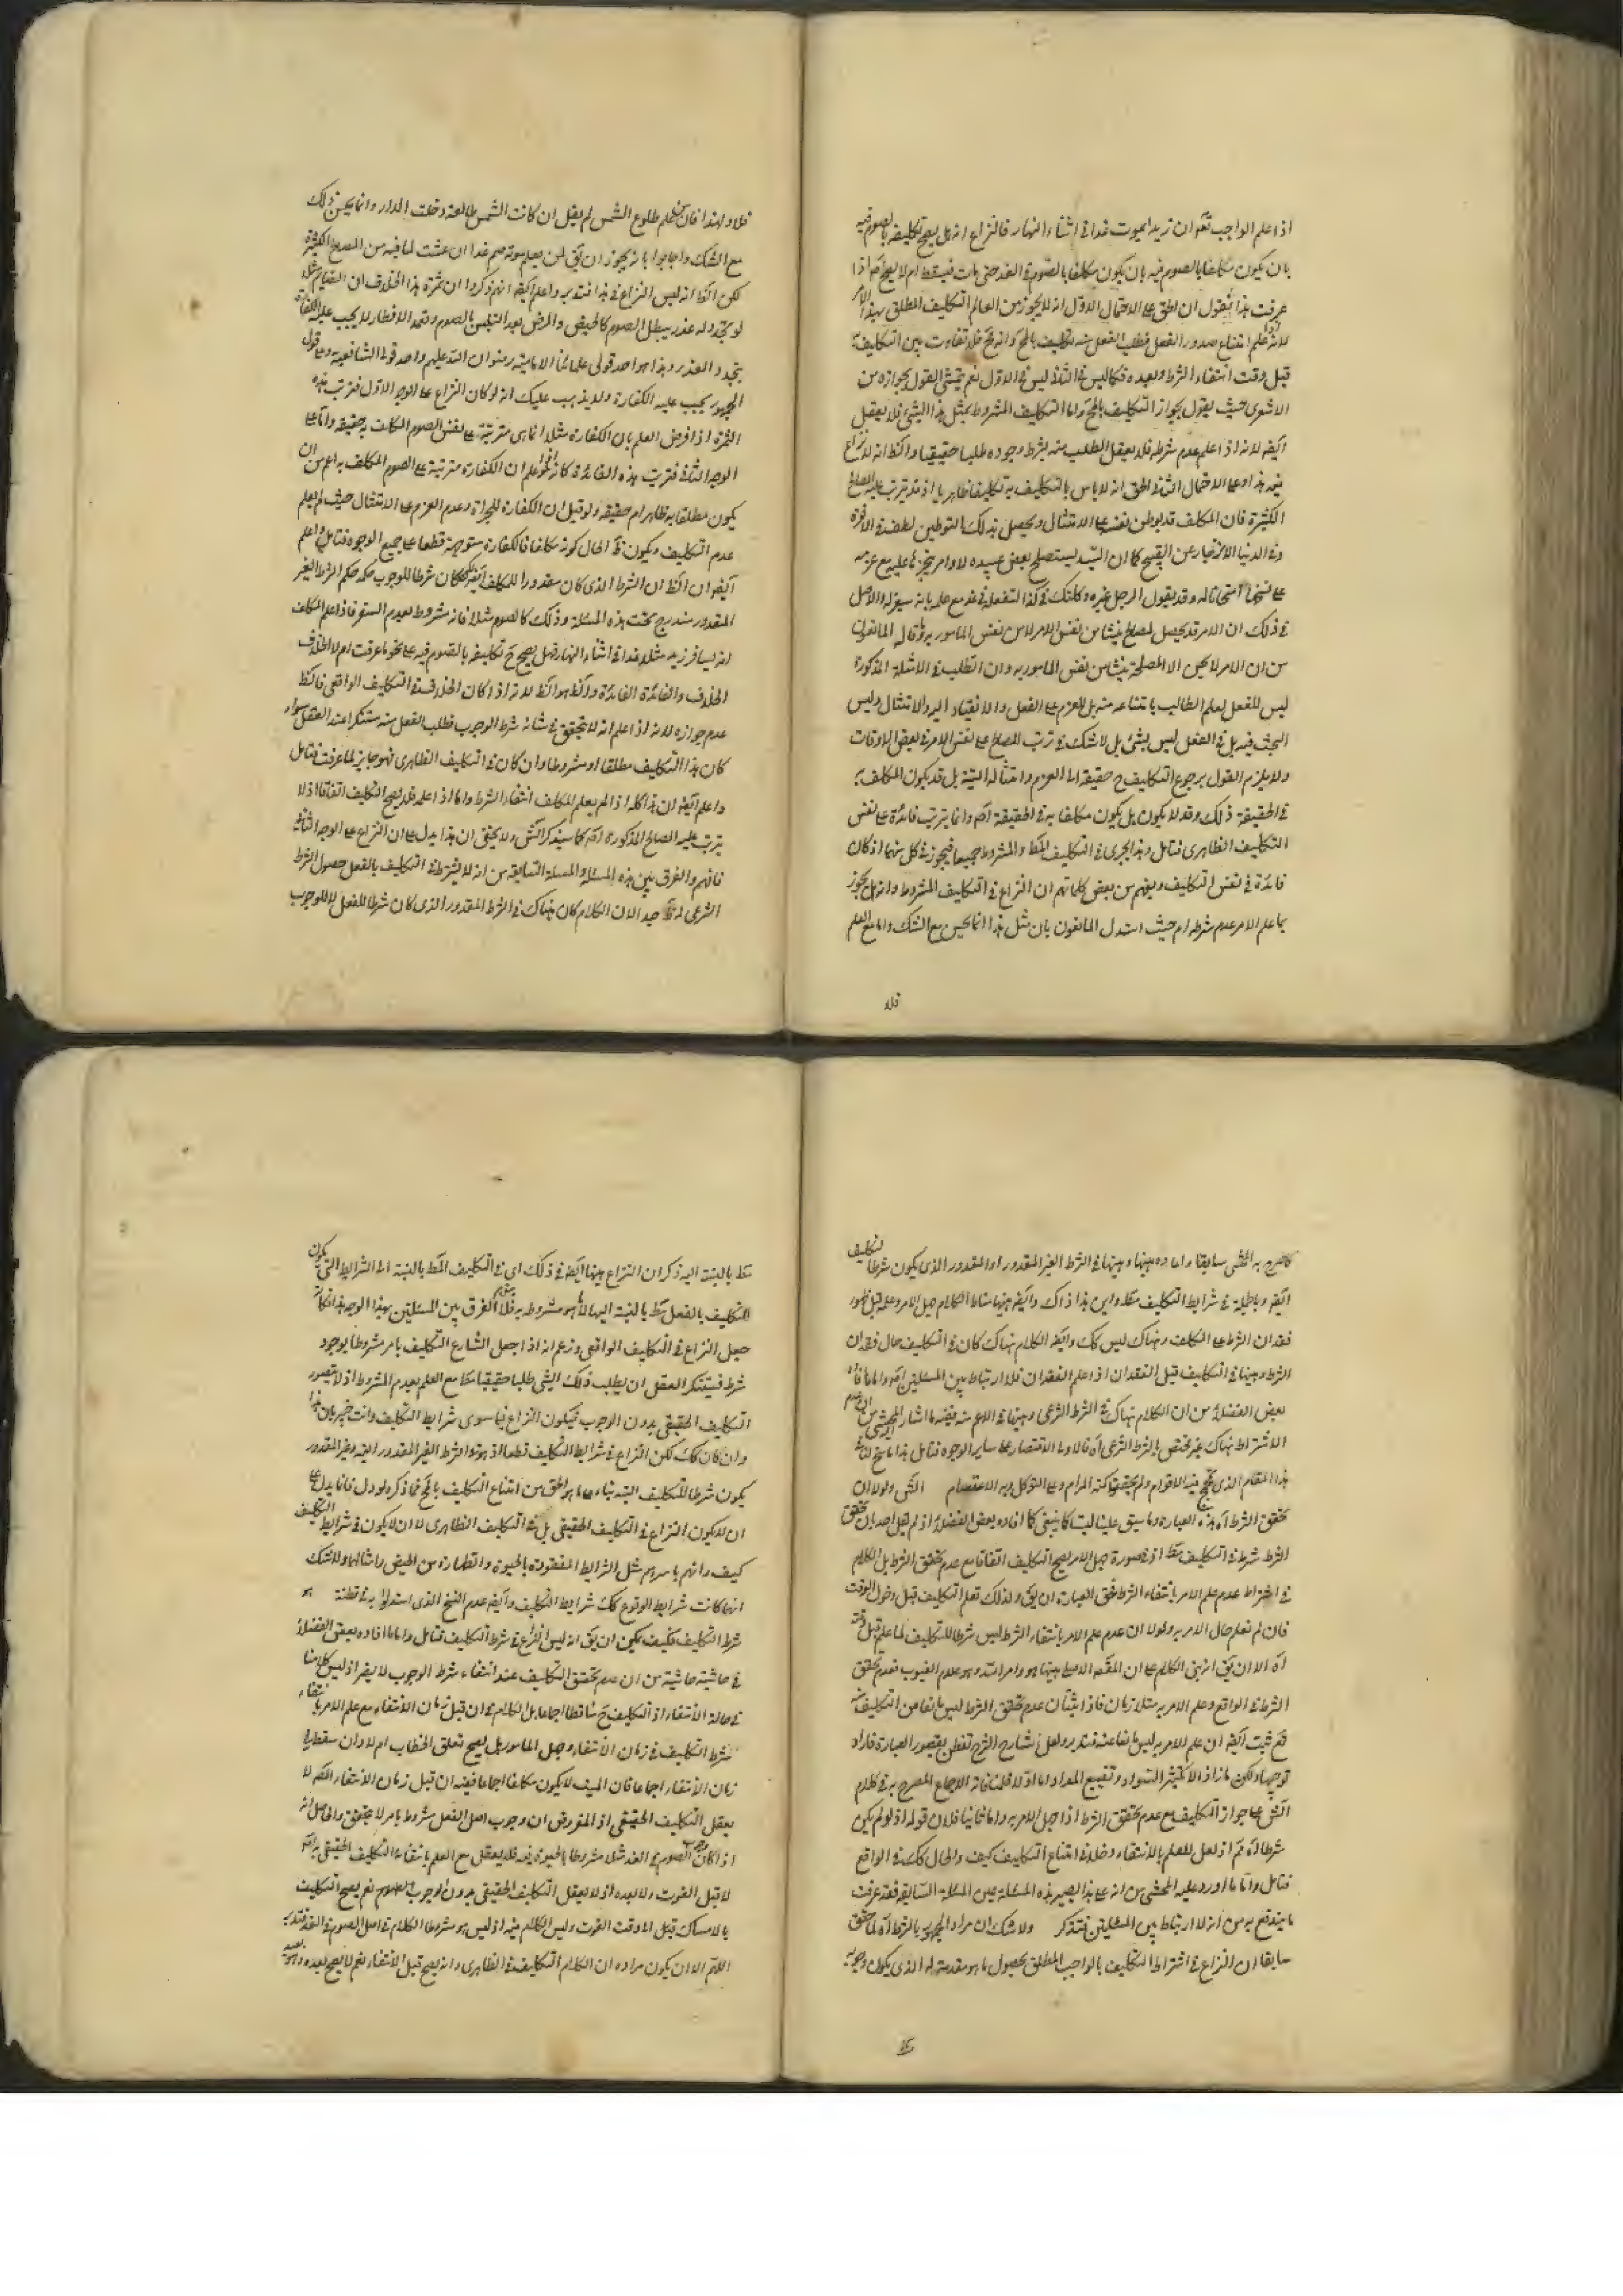 اذا علم الواجب تعّه ان زيدا يموت غدا فى اثناء النهار فالنزاع انه هل يصح تكليفه بالصوم فيه
بان يكون مكلفا بالصوم فيه بان يكون مكلفا بالصوم فى الغد حتى مات فيسقط ام لا يصح اذا
عرفت هذا فنقول ان الحق على الاحتمال الاول انه لا يجوز من العالم التكليف المطلق بهذا الامر
لانه علم امتناع صدور الفعل فطلب الفعل منه تكليف بالمح وانه قبح فلا تفاوت بين التكليف به
قبل وقت انتفاء الشرط وبعيده فكما ليس فى الثانى ليس فى الاول نعم يتمشى القول بجوازه من
الاشعرى حيث يقول بجواز التكليف بالمح واما التكليف المشروط بمثل هذا الشئ فلا يعقل
ايضه لانه اذا علم عدم شرطه فلا يعقل الطلب منه بشرط وجوده طلبا حقيقيا والظ انه لا نزاع
فيه هذا وعلى الاحتمال الثانى الحق انه لا باس بالتكليف به تكليفا ظاهريا اذ قد يترتب عليه المصالح
الكثيرة فان المكلف قد يوطن نفسه على الامتثال ويحصل بذلك التوطين لطف فى الاخرة
وفى الدنيا الانزجار عن القبيح كما ان السيد يستصلح بعض عبيده لاوامر ينجزها عليه مع عزمه
على نسخها امتحانا له وقد يقول الرجل لغيره وكلتك فى كذا لتفعله فى غد مع علمه بانه سيعزله والاصل
فى ذلك ان الامر قد يحصل لمصالح ينشا من نفس الامر لا من نفس المامور به وما قاله المانعون
من ان الامر لا يحسن الا لمصلحة ينشا من نفس المامور به وان الطلب فى الامثلة المذكورة
ليس للفعل لعلم الطالب بامتناعه منه بل للعزم على الفعل والانقياد اليه والامتثال وليس
البحث فيه بل فى الفعل ليس بشئ بل لا شك فى ترتب المصالح على نفس الامر فى بعض الاوقات
ولا يلزم القول برجوع التكليف ح حقيقة الى العزم وامتثاله البتة بل قد يكون المكلف به
فى الحقيقة ذلك وقد لا يكون بل يكون مكلفا به فى الحقيقة اصم وانما يترتب فائدة على نفس
التكليف الظاهرى فتامل وهذا يجرى فى التكليف المط والمشروط جميعا فيجوز فى كل منهما اذ كان
فائدة فى نفس التكليف ويفهم من بعض كلماتهم ان النزاع فى التكليف المشروط وانه هل يجوز
بما علم الامر عدم شرطه ام حيث استدل المانعون بان مثل هذا انما يحسن مع الشك واما مع العلم
فلا
فلا ولهذا فان علم طلوع الشمس لم يقل ان كانت الشمس طالعة دخلت الدار وانما يحسن ذلك
مع الشك واجابوا بانه يجوز ان يقّ لمن يعلم موته صم غدا ان عشت لما فيه من المصالح الكثيرة
لكن الظ انه ليس النزاع فى هذا فتدبر واعلم ايضه انهم ذكروا ان ثمرة هذا الخلاف ان الصايم مثلا
لو تجدد له عذر يبطل الصوم كالحيض والمرض بعد التلبس بالصوم وتعمد الافطار لا يجب عليه الكفارة
بتجدد العذر وهذا هو احد قولى علمائنا الامامية رضوان الله عليهم واحد قولى الشافعية وعلى قول
الجمهور يجب عليه الكفارة ولا يذهب عليك انه لو كان النزاع على الوجه الاول فترتب هذه
الثمرة اذا فرض العلم بان الكفارة مثلا انما هى مترتبة على نفس الصوم المكلف به حقيقة واما على
الوجه الثانى فترتب هذه الفائدة كانه اذا علم ان الكفارة مترتبة على الصوم المكلف به اعم من ان
يكون مطلقا به ظاهرا ام حقيقة ولو قيل ان الكفارة للجراة وعدم العزم على الامتثال حيث لم يعلم
عدم التكليف ويكون فى الحال كونه مكلفا فالكفارة متوجهة قطعا على جميع الوجوه فتامل واعلم
ايضه ان الظ ان الشرط الذى كان مقدورا للمكلف ايضه وكان شرطا للوجوب حكمه حكم الشرط الغير
المقدور مندرج تحت هذه المسئلة وذلك كالصوم مثلا فانه مشروط بعدم السفر فاذا علم المكلف
انه يسافر زيد مثلا غدا فى اثناء النهار فهل يصح ح تكليفه بالصوم فيه على نحو ما عرفت ام لا الخلاف
الخلاف والفائدة الفائدة والظ هو الظ لانه اذا كان الخلاف فى التكليف الواقعى فالظ
عدم جوازه لانه اذا علم انه لا يتحقق فى شانه شرط الوجوب فطلب الفعل منه مستنكر عند العقل سواء
كان هذا التكليف مطلقا او مشروطا وان كان فى التكليف الظاهرى فهو جايز لما عرفت فتامل
واعلم ايضه ان هذا كله اذا لم يعلم المكلف انتفاء الشرط واما اذا علمه فلا يصح التكليف اتفاقا اذ لا
يترتب عليه المصالح المذكورة اصم كما سيذكر الش ولا يخفى ان هذا يدل على ان النزاع على الوجه الثانى
فافهم والفرق بين هذه المسئلة والمسئلة السابقة من انه لا يشترط فى التكليف بالفعل حصول الشرط
الشرعى له ظ جدا لان الكلام كان هناك فى الشرط المقدور الذى كان شرطا للفعل لا للوجوب
كما صرح به المحشى سابقا وافاده هيهنا وهيهنا فى الشرط الغير المقدور او المقدور الذى يكون شرطا للتكليف
ايضه وبالجملة فى شرايط التكليف مط واين هذا ذاك وايضه هيهنا مناط الكلام جهل الامر وعلمه قبل ظهور
فقدان الشرط على المكلف وهناك ليس كك وايضه الكلام هناك كان فى التكليف حال فقدان
الشرط وهيهنا فى التكليف قبل الفقدان اذا علم الفقدان فلا ارتباط بين المسئلتين اصم واما ما افاد
بعض الفضلاء من ان الكلام هناك فى الشرط الشرعى وهيهنا فى الاعم منه ففيه ما اشار المحشى من ان عدم
الاشتراط هناك غير مختص بالشرط الشرعى اه فالاولى الاقتصار على ساير الوجوه فتامل هذا ما سنح لنا فى
هذا المقام الذى فيه الاقوام ولم يحققوا كنه المرام وعلى التوكل وبه الاعتصام الش ولولا ان
تحقق الشرط اه هذه العبارة وما سبق عليها ليستا كما ينبغى كما افاده بعض الفضلاء اذ لم يقل احد بان تحقق
الشرط شرط فى التكليف مط اذ فى صورة جهل الامر يصح التكليف اتفاقا مع عدم تحقق الشرط بل الكلام
فى اشتراط عدم علم الامر بانتفاء الشرط فحق العبارة ان يقّ ولذلك تعلم التكليف قبل دخول الوقت
فان لم تعلم حال الامر به ولولا ان عدم علم الامر بانتفاء الشرط ليس شرطا للتكليف لما علم قبل وقته
اه الا ان يقّ انه بنى الكلام على ان المقصد الاصلى هيهنا هو اوامر الله وهو علام الغيوب فعدم تحقق
الشرط فى الواقع وعلم الامر به متلازمان فاذا اثبتنا ان عدم تحقق الشرط ليس مانعا من التكليف فيه
فقد ثبت ايضه ان علم الامر به ليس مانعا عنه فتدبر ولعل شارح الشرح تفطن بقصور العبارة فاراد
توجيها ولكن ما زاد الا تكثير السواد وتضييع المداد اما اولا فلمنافاته الاجماع المصرح به فى كلام
الش على جواز التكليف مع عدم تحقق الشرط اذا جهل الامر به واما ثانيا فلان قوله اذ لو لم يكن
شرطا اه ثم اذ لعل للعلم بالانتفاء دخلا فى امتناع التكليف كيف والحال كك فى الواقع
فتامل واما ما اورد عليه المحشى من انه على هذا يصير هذه المسئلة عين المسئلة السابقة فقد عرفت
ما يندفع به من انه لا ارتباط بين المسئلتين فتذكر ولا شك ان مراد الجمهور بالشرط اه لما حقق
سابقا ان النزاع فى اشتراط التكليف بالواجب المطلق بحصول ما هو مقدمة له الذى يكون وجوبه
مط بالنسبة اليه ذكر ان النزاع هيهنا ايضه فى ذلك اى فى التكليف المط بالنسبة الى الشرايط التى يكون
التكليف بالفعل مط بالنسبة اليها لا ما هو مشروط به الفرق بين المسئلتين بهذا الوجه هذا وكانه
جعل النزاع فى التكليف الواقعى وزعم انه اذا جعل الشارع التكليف بامر مشروطا بوجود
شرط فيستنكر العقل ان يطلب ذلك الشئ طلبا حقيقيا مع العلم بعدم المشروط اذ لا يتصور
التكليف الحقيقى بدون الوجوب فيكون النزاع فيما سوى شرايط التكليف وانت خبير بان هذا
وان كان كك لكن النزاع فى شرايط التكليف قطعا اذ هو الشرط الغير المقدور البتة وغير المقدور
يكون شرطا للتكليف البتة بناء على ما هو الحق من امتناع التكليف بالمح فما ذكره لو دل فانما يدل على
ان لا يكون النزاع فى التكليف الحقيقى بل فى التكليف الظاهرى لا ان لا يكون فى شرايط التكليف
كيف وانهم باسرهم مثل الشرايط المفقودة بالحيوة والطهارة من الحيض وامثالهما ولا شك
انها كانت شرايط الوقوع كك شرايط التكليف وايضه عدم النسخ الذى استدلوا به فى هو
شرط التكليف فكيف يمكن ان يقّ انه ليس النزاع فى شرط التكليف فتامل واما ما افاده بعض الفضلاء
فى حاشية حاشيته من ان عدم تحقق التكليف عند انتفاء شرط الوجوب لا يضر اذ ليس كلامنا
فى حالة الانتفاء اذ التكليف ح ساقط اجماعا بل الكلام فى ان قبل زمان الانتفاء مع علم الامر بانتفاء
شرط التكليف فى زمان الانتفاء وجهل المامور هل يصح تعلق الخطاب ام لا وان سقط فى
زمان الانتفاء اجماعا فان الميت لا يكون مكلفا اجماعا ففيه ان قبل زمان الانتفاء ايضه لا
يعقل التكليف الحقيقى اذ المفروض ان وجوب اصل الفعل مشروط بامر لا يتحقق والحاصل انه
اذا كان وجوب الصوم فى الغد مثلا مشروطا بالحيوة فيه فلا يعقل مع العلم بانتفاء التكليف الحقيقى به اصم
لا قبل الفوت ولا بعده اذ لا يعقل التكليف الحقيقى بدون الوجوب نعم يصح التكليف
بالامساك قبل الى وقت الفوت وليس الكلام فيه اذ ليس هو مشروطا الكلام فى اصل الصوم فى الغد فتدبر
اللهم الا ان يكون مراده ان الكلام التكليف فى الظاهرى وانه يصح قبل الانتفاء نعم لا يصح بعده وهو بعيد